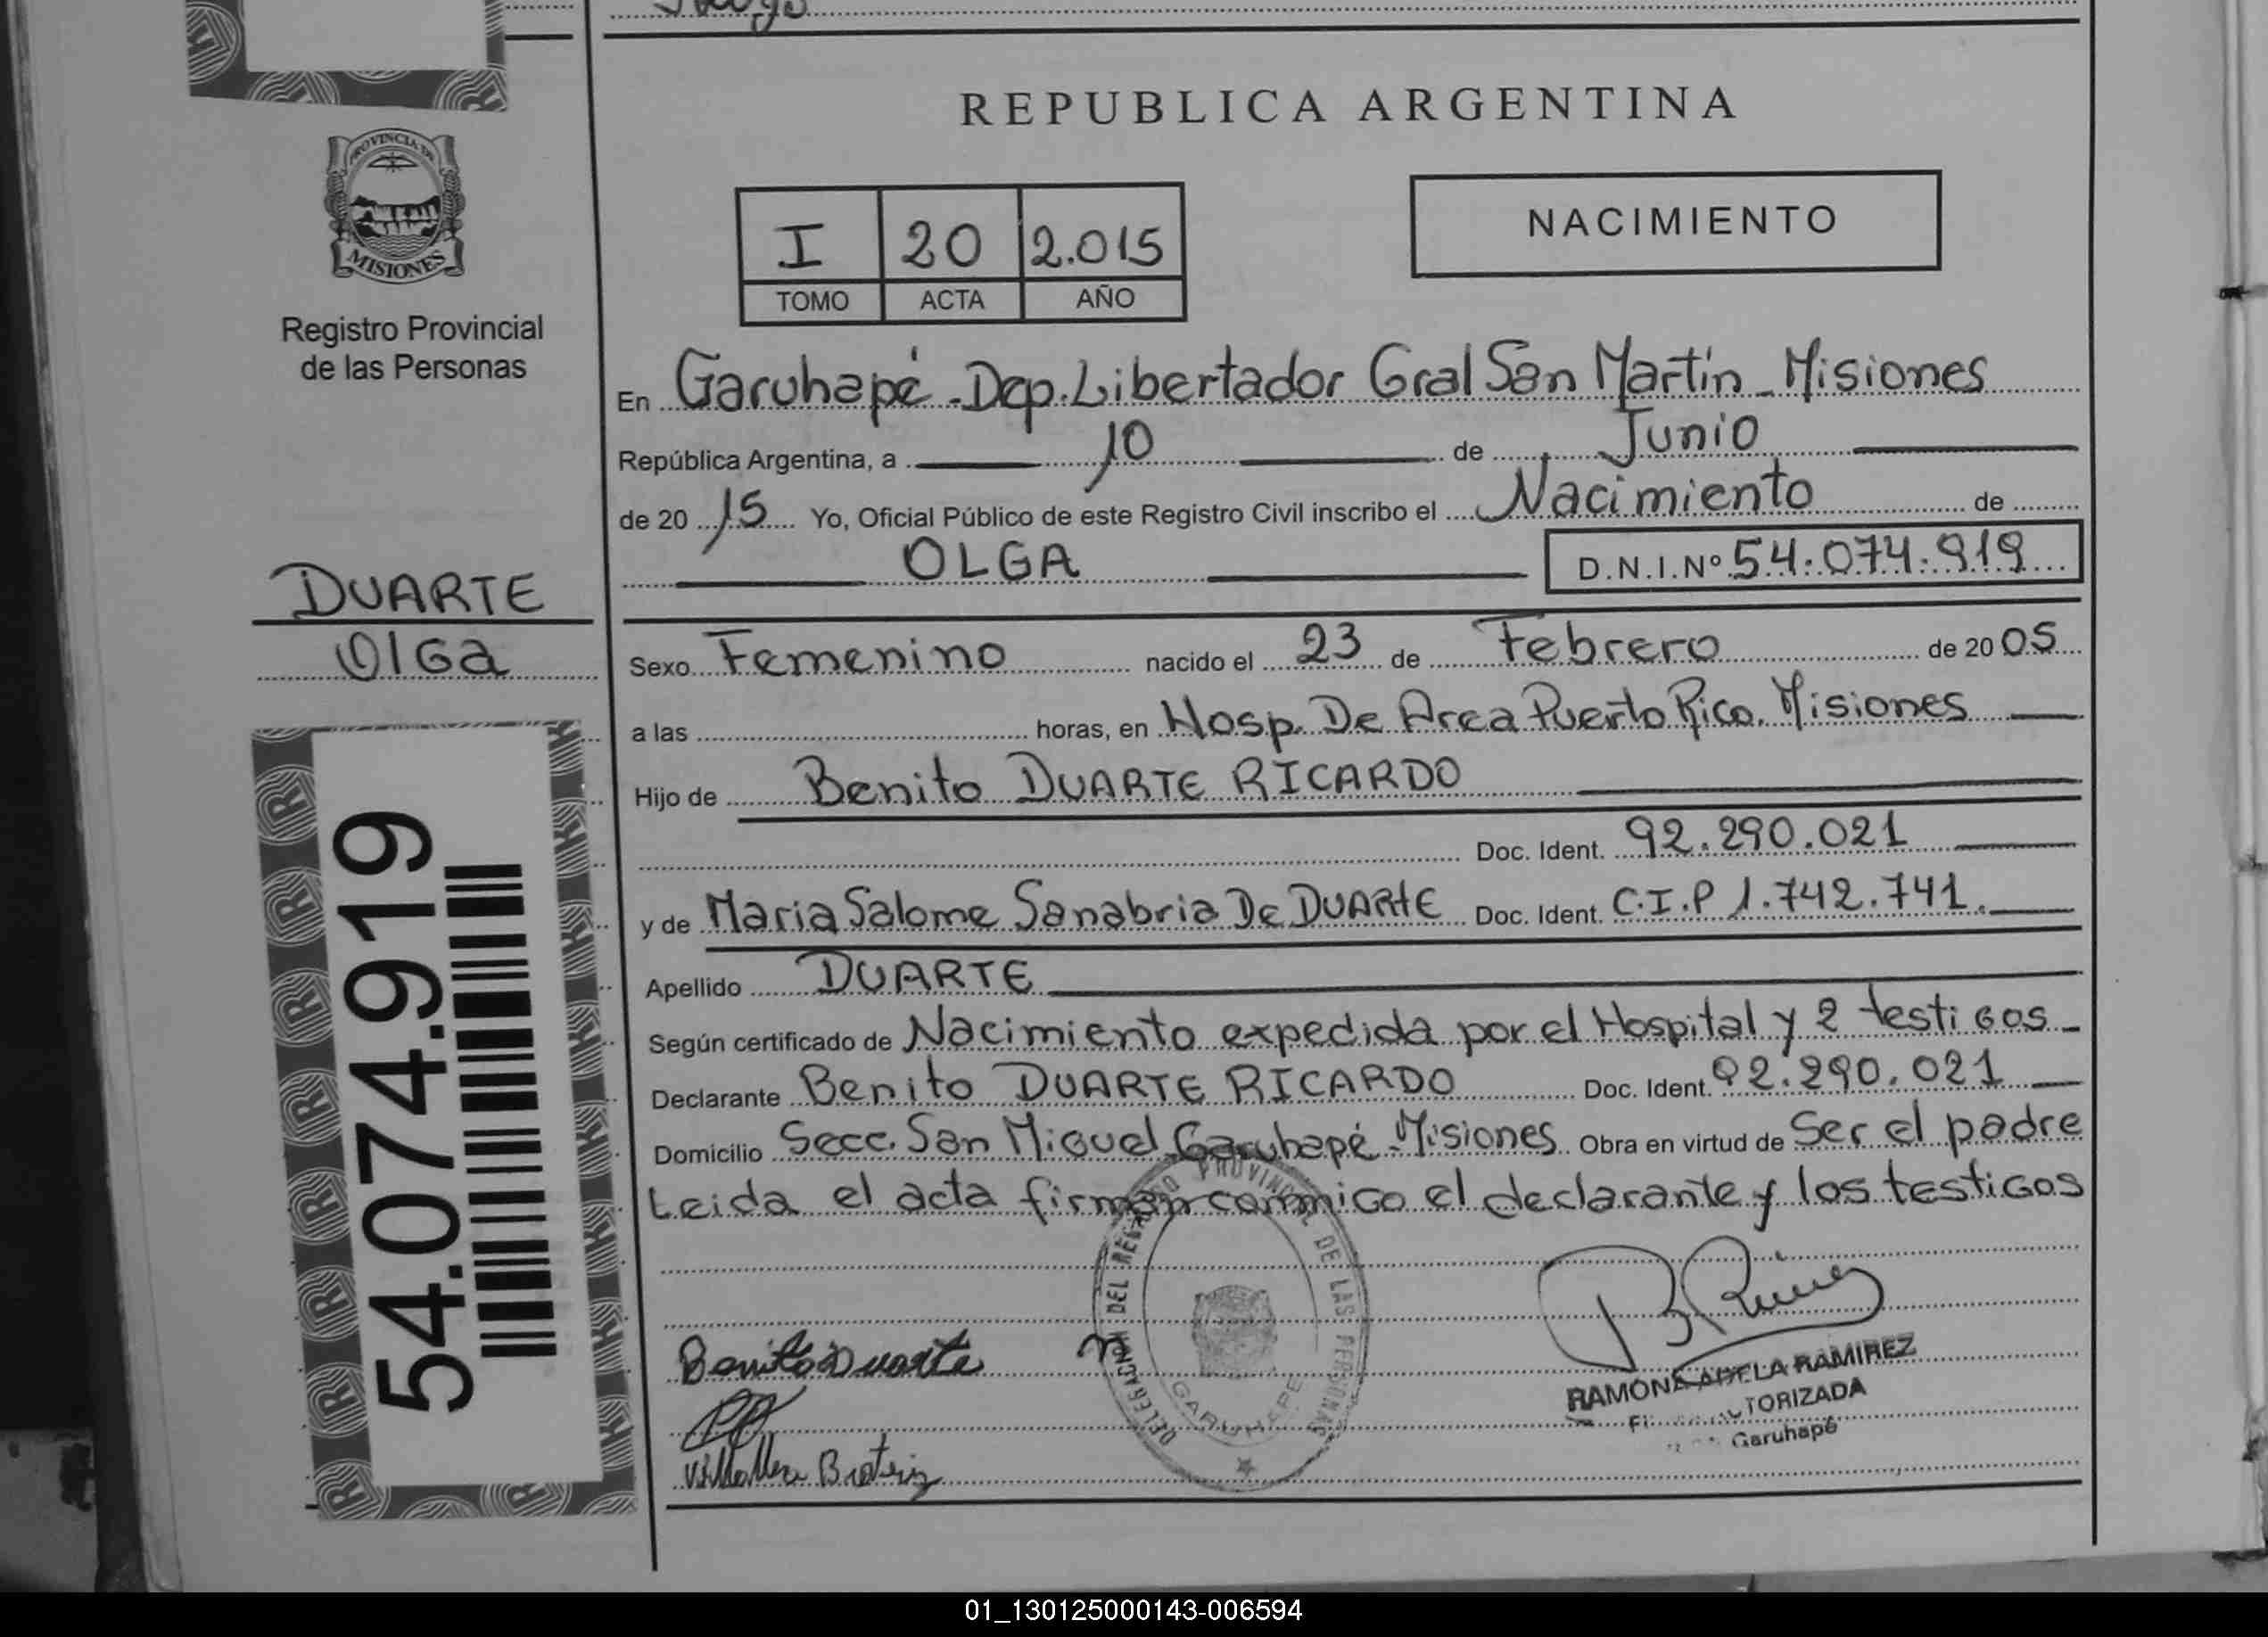 REPUBLICA ARGENTINA
PROVINCIA DE
MISIONES
Registro Provincial
de las Personas
I 20 2.015
TOMO ACTA AÑO
NACIMIENTO
En Garuhapé - Dep. Libertador Gral San Martín - Misiones
República Argentina, a 10 de Junio
de 2015 Yo, Oficial Público de este Registro Civil inscribo el Nacimiento de
OLGA D.N.I.Nº 54.074.919
DUARTE
Olga
Sexo Femenino nacido el 23 de Febrero de 2005
a las horas, en Hosp. De Area Puerto Rico. Misiones
Hijo de Benito DUARTE RICARDO
Doc. Ident. 92.290.021
y de Maria Salome Sanabria De DUARTE Doc. Ident. C.I.P 1.742.741.
Apellido DUARTE
Según certificado de Nacimiento expedida por el Hospital y 2 testigos
Declarante Benito DUARTE RICARDO Doc. Ident. 92.290.021
Domicilio Secc. San Miguel Garuhapé - Misiones Obra en virtud de Ser el padre
Leida el acta firman conmigo el declarante y los testigos
54.074.919
Benito Duarte
DELEGACION DEL REGISTRO PROVINCIAL DE LAS PERSONAS
GARUHAPE
RAMONA ADELA RAMIREZ
Garuhapé
01_130125000143-006594